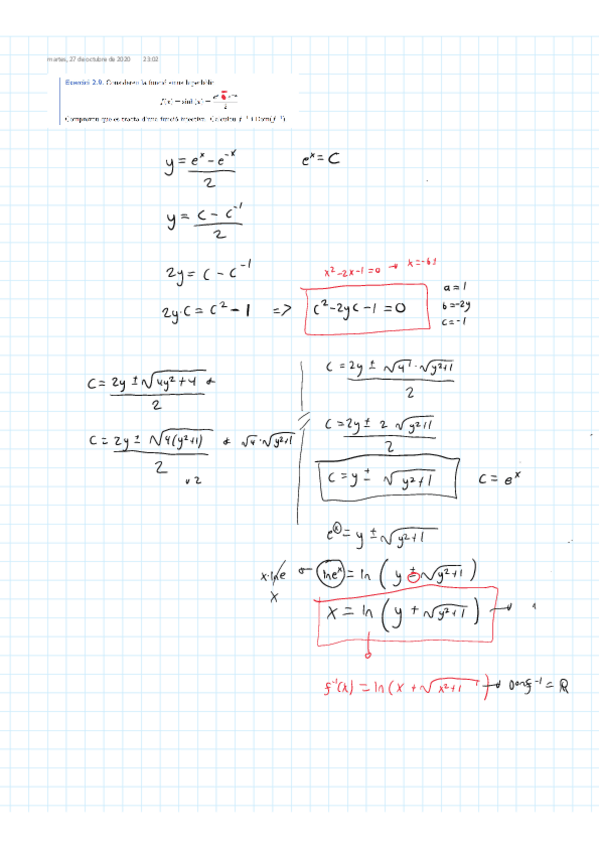 martes, 27 de octubre de 2020 23:02
Exercici 2.9. Considerem la funció sinus hiperbòlic
f(x) = sinh(x) = 
2
Comproveu que es tracta d'una funció injectiva. Calculeu f⁻¹ i Dom(f⁻¹)
y = (e^x - e^-x)/2 e^x = C
y = (C - C^-1)/2
2y = C - C^-1
x² - 2x - 1 = 0 → x = -b±
2y·C = C² - 1 => C² - 2yC - 1 = 0
a = 1
b = -2y
c = -1
C = (2y ± √(4y² + 4))/2
C = (2y ± √(4(y²+1)))/2 √4·√(y²+1)
C = (2y ± √4 · √(y²+1))/2
C = (2y ± 2 √(y²+1))/2
C = y ± √(y²+1) C = e^x
e^x = y ± √(y²+1)
x·ln e ln e^x = ln (y ± √(y²+1))
x
x = ln (y + √(y²+1))
f⁻¹(x) = ln(x + √(x²+1)) → Dom f⁻¹ = ℝ